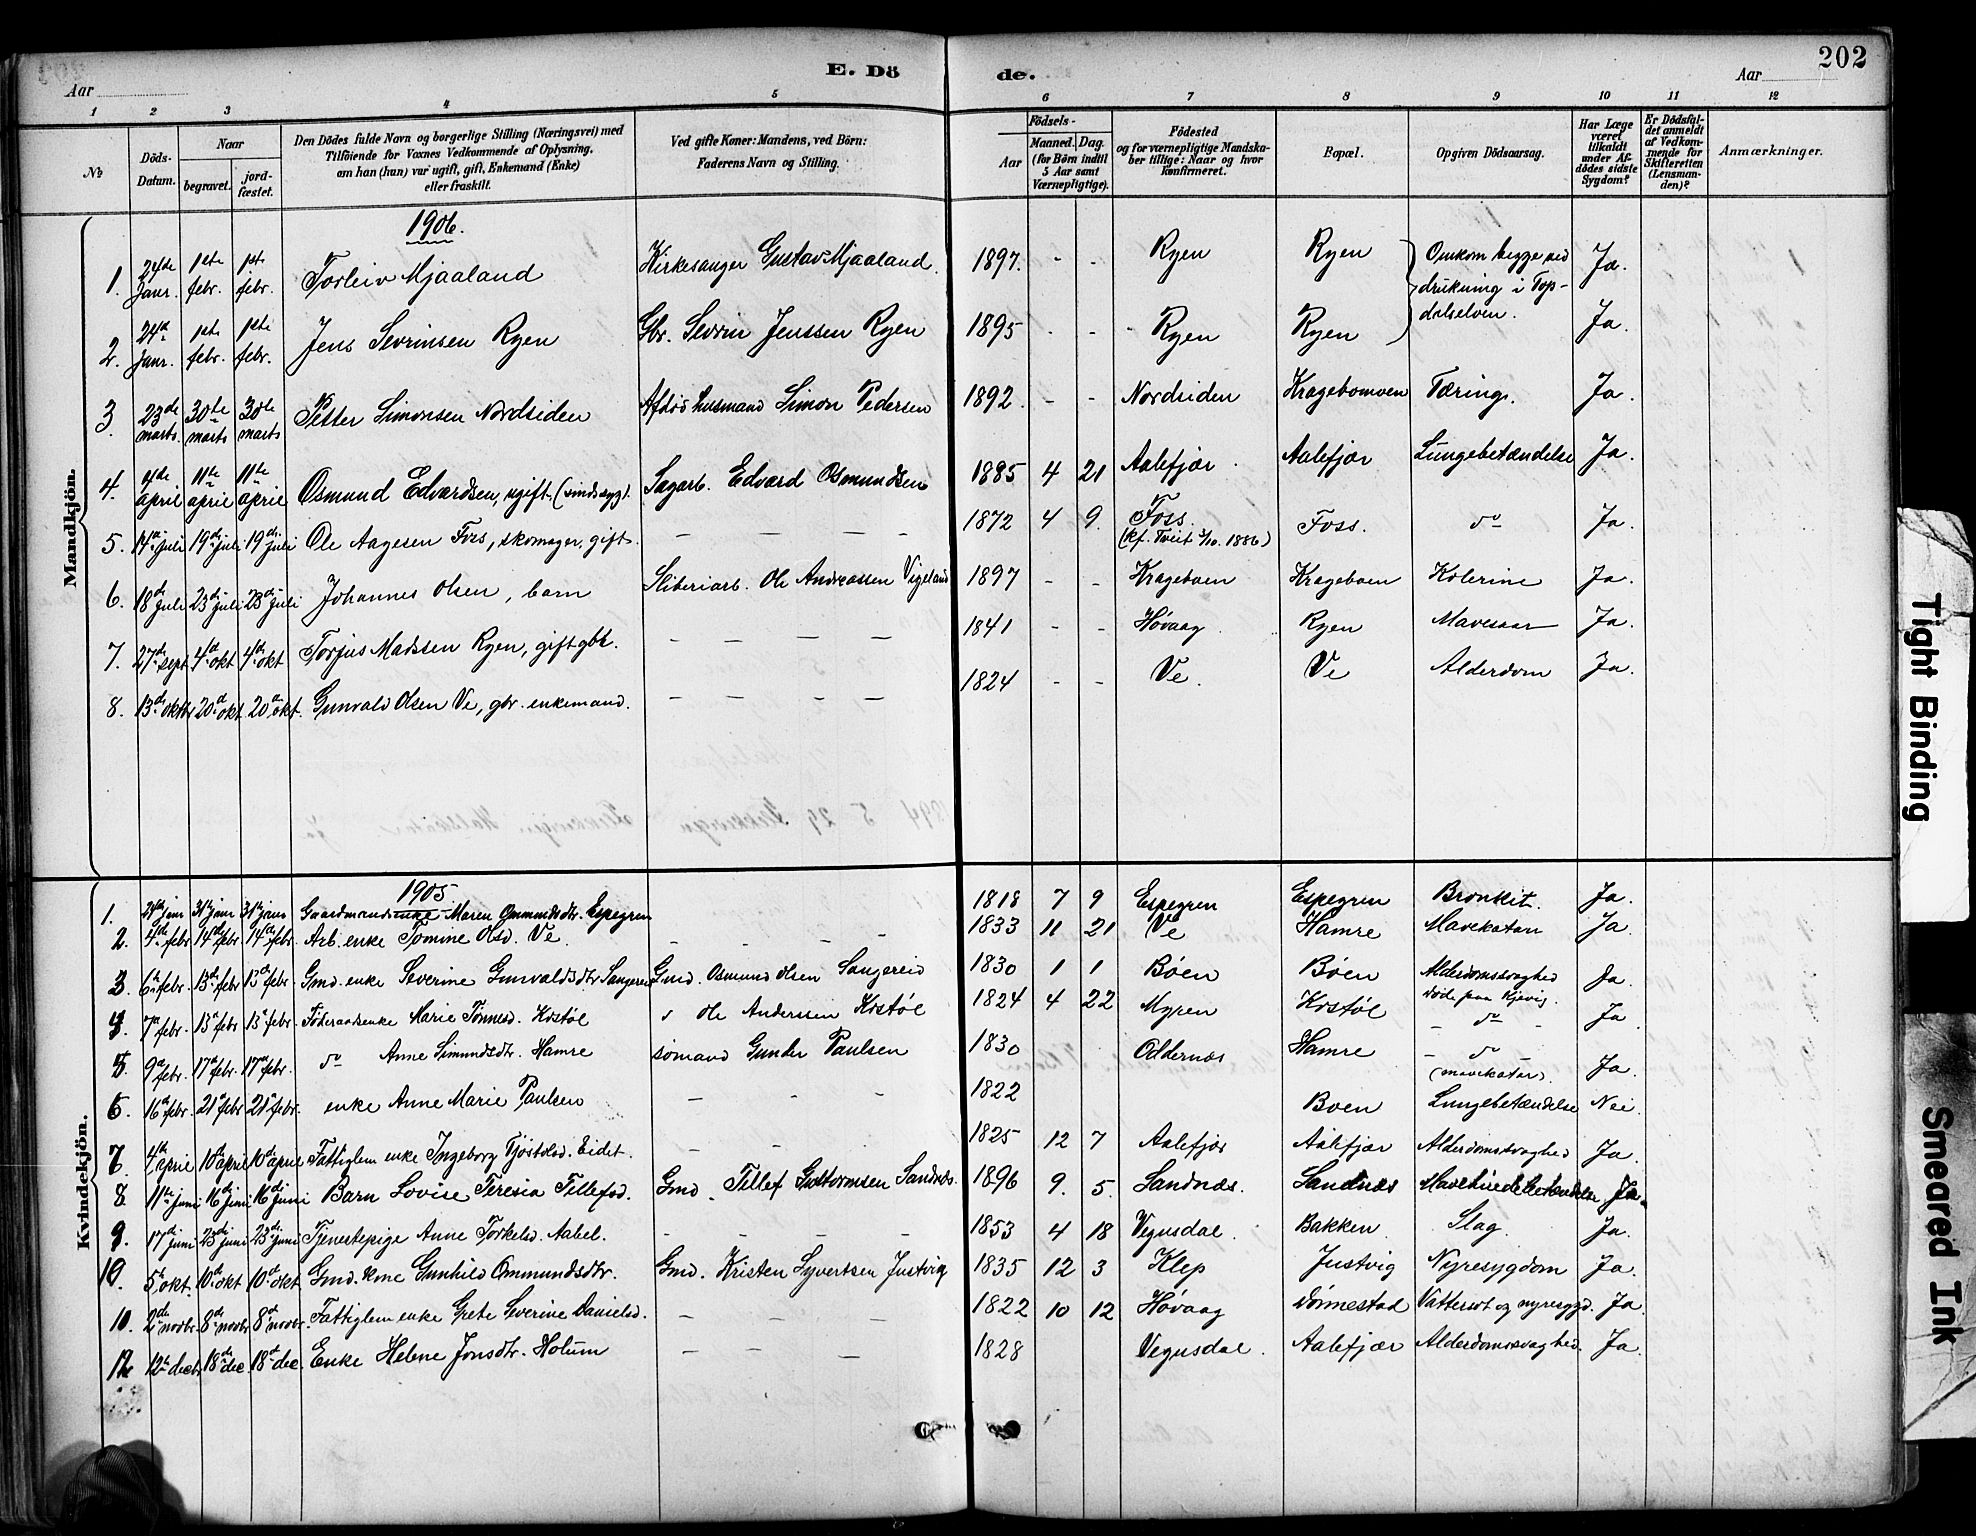 202
Aar
E. Dö
de.
Aar
1 2 3 4 5 6 7 8 9 10 11 12
№
Döds-
Datum.
Naar
begravet.
jord-
fæstet.
Den Dödes fulde Navn og borgerlige Stilling (Næringsvei) med
Tilföiende for Voxnes Vedkommende af Oplysning,
om han (hun) var ugift, gift, Enkemand (Enke)
eller fraskilt.
Ved gifte Koner: Mandens, ved Börn:
Faderens Navn og Stilling.
Födsels-
Aar
Maaned. Dag.
(for Börn indtil
5 Aar samt
Værnepligtige).
Födested
og for værnepligtige Mandska-
ber tillige: Naar og hvor
konfirmeret.
Bopæl.
Opgiven Dödsaarsag.
Har Læge
været
tilkaldt
under Af-
dödes sidste
Sygdom?
Er Dödsfal-
det anmeldt
af Vedkom-
mende for
Skifteretten
(Lensman-
den)?
Anmærkninger.
Mandkjön.
1906.
1. 24de Janr. 1ste febr. 1ste febr. Torleiv Mjaaland Kirkesanger Gustav Mjaaland. 1897. - - Ryen Ryen Omkom begge ved drukning i Top-dalselven. Ja.
2. 24de Janr. 1ste febr. 1ste febr. Jens Sevrinsen Ryen Gbr. Sevrin Jenssen Ryen 1895 - - Ryen Ryen Ja.
3. 23de marts. 30te marts 30te marts Petter Simonsen Nordsiden Afdøs husmand Simon Pedersen 1892. - - Nordsiden Kragebomoen Tæring. Ja.
4. 4de april 11te april 11te april Osmund Edvardsen, ugift. (sindssyg). Sagarb. Edvard Osmundsen 1885 4 21 Aalefjær. Aalefjær Lungebetændelse Ja.
5. 14de juli 19de juli 19de juli Ole Aagesen Foss, skomager, gift. — — — — 1872 4 9. Foss. (kf. Tveit 3/10. 1886) Foss. do Ja.
6. 18de juli 23de juli 23de juli Johannes Olsen, barn Sliberiarb. Ole Andreassen Vigeland 1897 - - Krageboen Krageboen Kolerine Ja.
7. 27de sept. 4de okt 4de okt Torjus Madssen Ryen, gift gbr. — — — — 1841 - - Høvaag. Ryen Mavesaar Ja.
8. 13de oktbr 20de okt. 20de okt. Gunvald Olsen Ve, gbr. enkemand. — — — — 1824 - - Ve. Ve Alderdom Ja.
Kvindekjön.
1905
1. 24de janr 31te janr 31te janr Gaardmandsenke Maren Ommundsdtr. Espegren 1818 7 9 Espegren Espegren Bronkit. Ja.
2. 4de febr 14de febr 14de febr. Arb. enke Tomine Olsd. Ve. — — — — 1833 11 21 Ve Hamre Mavekatarr Ja.
3. 6te febr. 13de febr 13de febr. Gmd. enke Severine Gunvaldsdtr Sangereid Gmd. Osmund Olsen Sangereid 1830 1 1 Bôen Bôen Alderdomssvaghed Ja.
døde paa Kjevig.
4. 7de febr. 13de febr 13de febr. Föderaadsenke Marie Tönnesd. Krstöl Ole Anderssen Krstöl 1824 4 22 Myren Krstöl - do - Ja
5. 9de febr. 17de febr. 17de febr. do Anne Simundsdtr. Hamre sømand Gunder Paulsen 1830 Oddernæs Hamre - do (mavekatar). Ja.
6. 16de febr. 21de febr 21de febr. enke Anne Marie Paulsen — — — 1822 Boen Lungebetændelse Nei.
7. 4de april 10de april 10de april Fattiglem enke Ingeborg Tjöstolsd. Eidet. — — 1825 12 7 Aalefjær Aalefjær Alderdomssvaghed Ja.
8 11te juni 16de juni 16de juni Barn Lovise Teresia Tellefsd. Gmd. Tellef Guttormsen Sandnæs. 1896 9. 5. Sandnæs. Sandnæs Ja.
9. 17de juni 23de juni 23de juni Tjenestepige Anne Torkelsd. Aabel. — — — — 1853 4 18 Vegusdal. Bakken Slag. Ja.
10. 5te okt. 10de okt 10de okt Gmd. kone Gunhild Ommundsdtr. Gmd. Kristen Syvertsen Justvig 1835 12 3 Klep Justvig Nyresygdom Ja.
10. 2de novbr. 8de novbr 8de novbr. Fattiglem enke Grete Severine Danielsd. — — — 1822 10 12 Høvaag Dönnestad Vattersot og nyresygd. Ja.
12 12te decbr 18de dec. 18de dec. Enke Helene Jonsdtr. Holum — — — 1828 Vegusdal. Aalefjær Alderdomssvaghed. Ja.
Tight Binding
Smeared Ink